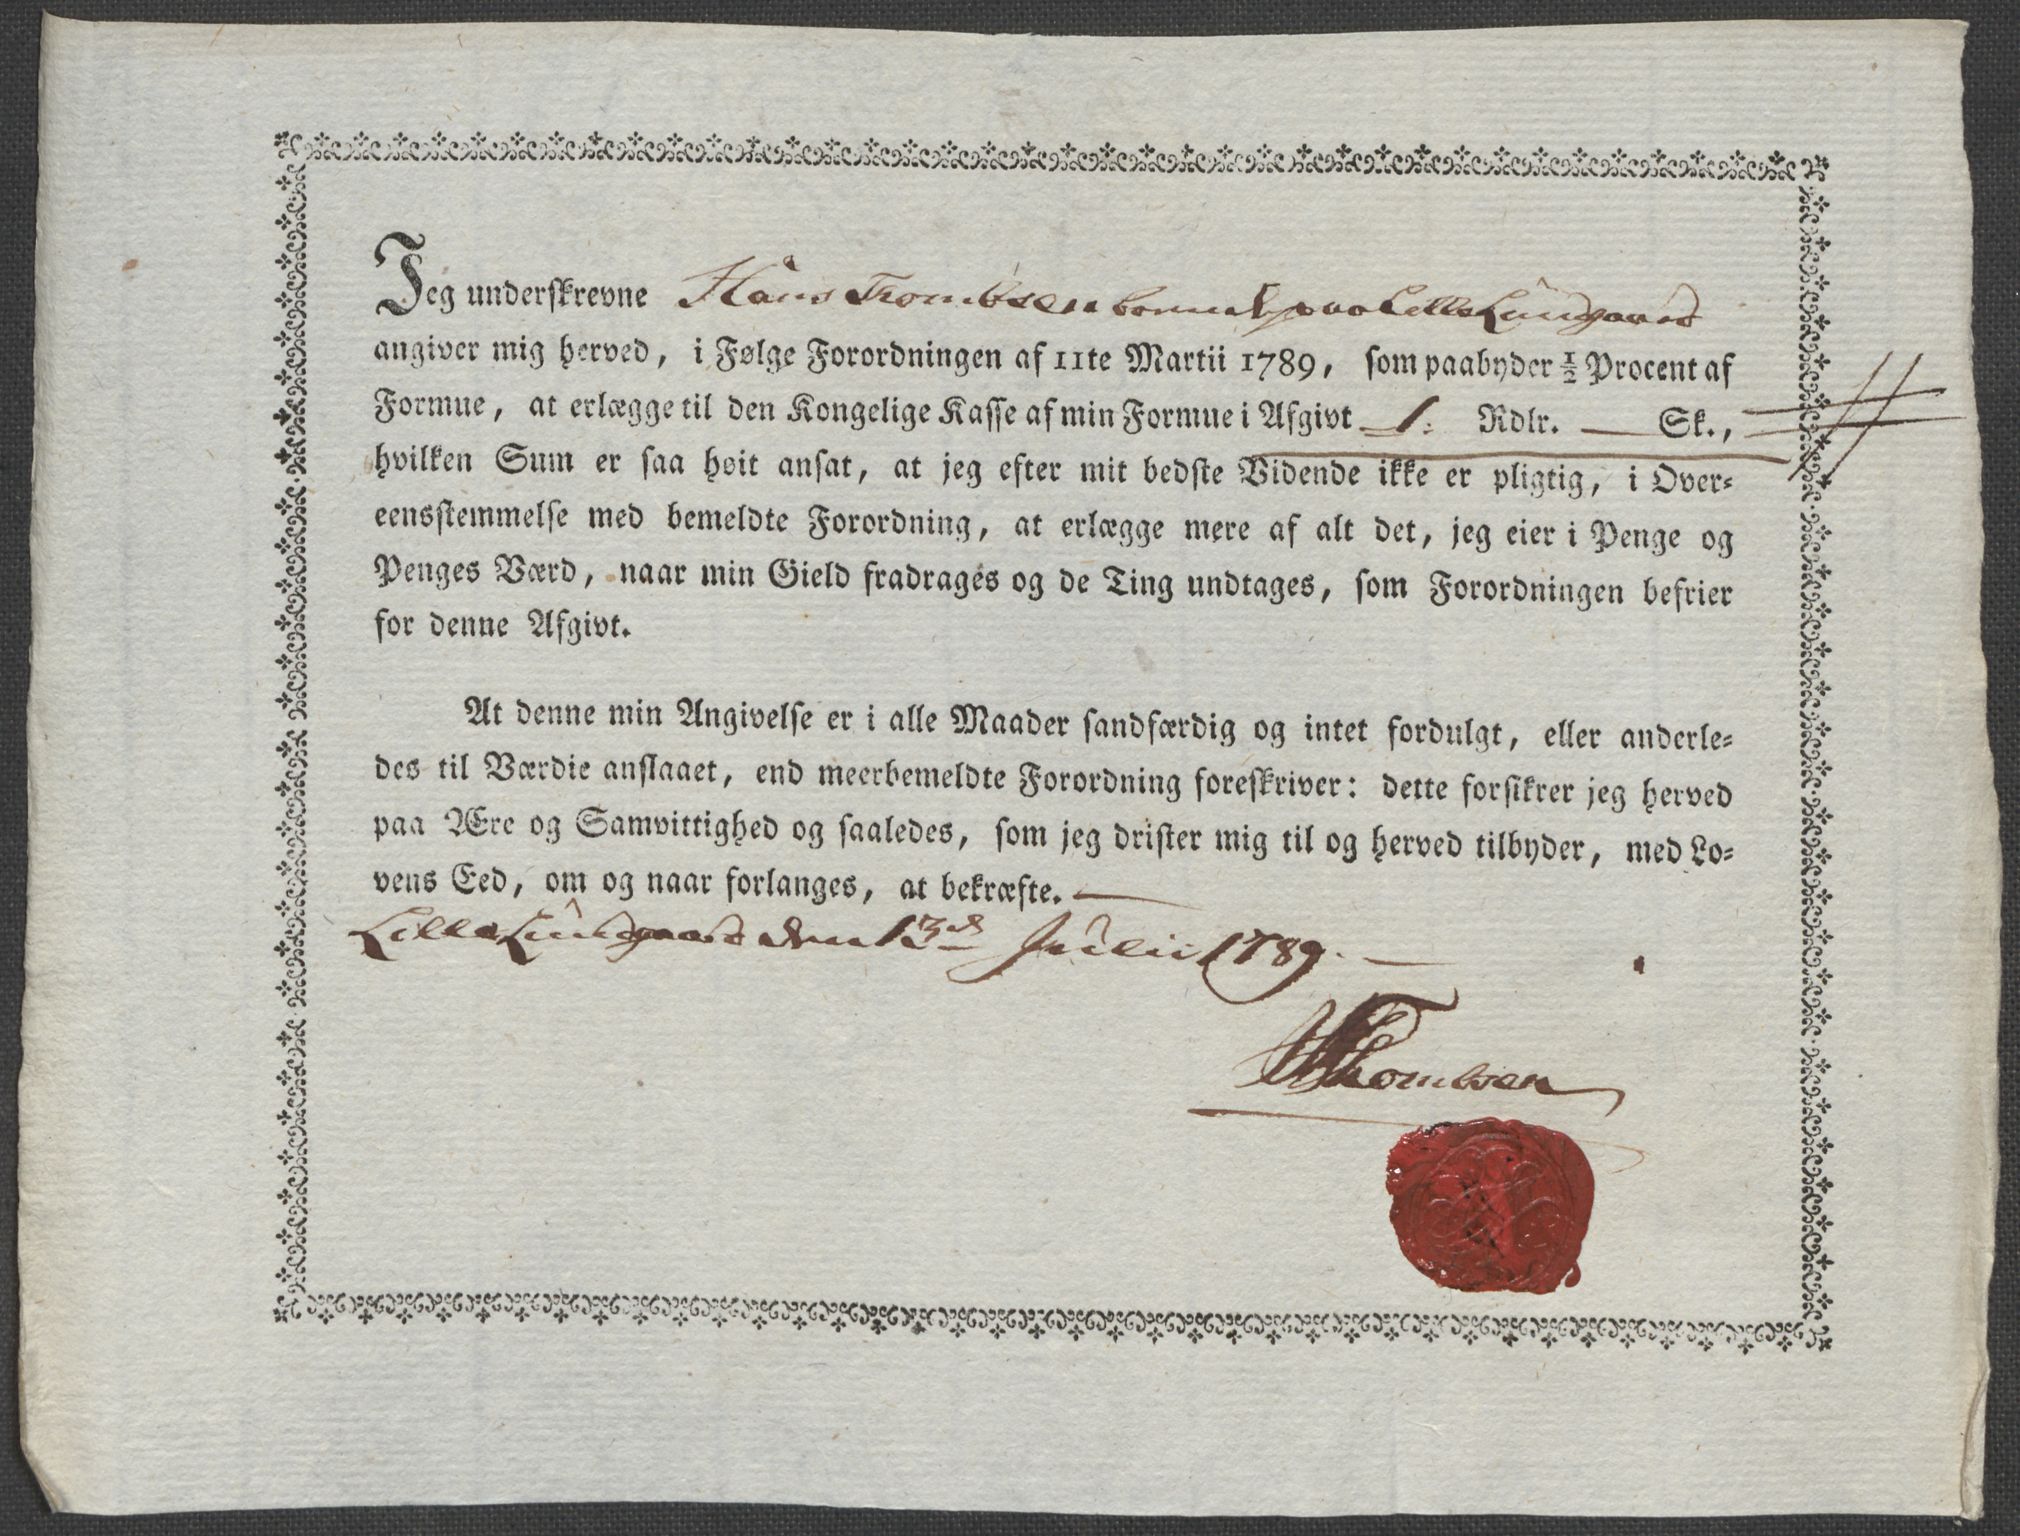 Jeg underskrevne Hans Trombsen boende paa Lille Lungaard
angiver mig herved, i Følge Forordningen af 11te Martii 1789, som paabyder ½ Procent af
Formue, at erlægge til den Kongelige Kasse af min Formue i Afgivt 1. Rdlr. — Sk.,
hvilken Sum er saa høit ansat, at jeg efter mit bedste Vidende ikke er pligtig, i Over-
eensstemmelse med bemeldte Forordning, at erlægge mere af alt det, jeg eier i Penge og
Penges Værd, naar min Gield fradrages og de Ting undtages, som Forordningen befrier
for denne Afgivt.
At denne min Angivelse er i alle Maader sandfærdig og intet fordulgt, eller anderle-
des til Værdie anslaaet, end meerbemeldte Forordning foreskriver: dette forsikrer jeg herved
paa Ære og Samvittighed og saaledes, som jeg drister mig til og herved tilbyder, med Lo-
vens Eed, om og naar forlanges, at bekræfte. —
Lille Lungaard den 13d Julii 1789. —